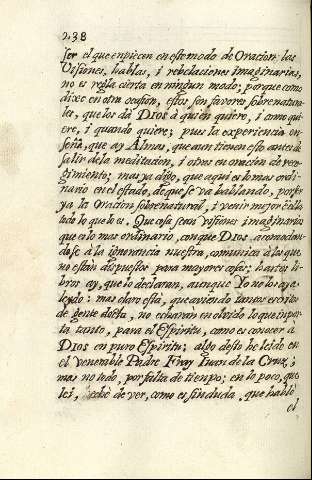 238
ser el que enpiecen en este modo de Oracion: las
Visiones, hablas, i rebelaciones imaginarias,
no es regla cierta en ningun modo; porque como
dixe en otra ocasion, estos son favores sobrenatura-
les, que los dá Dios à quien quiere, i como qui-
ere, i quando quiere; pues la experiencia en-
seña, que ay Almas, que aun tienen esto antes de
salir de la meditacion, i otros en oracion de reco-
gimiento; mas ya digo, que aqui es lo mas ordi-
nario en el estado, de que se va hablando, por ser
ya la oracion sobrenatural, i venir mejor
lado lo que lo es. Que cosa sean visiones imaginarias
que es lo mas ordinario, con que Dios, acomodan-
dose à la ignorancia nuestra, comunica à los que
no están dispuestos para mayores cosas; hartos li-
bros ay, que lo declaran, aunque Yo no los aya
leydo: mas claro esta, que aviendo tantos escritos
de gente docta, no echarán en olvido lo que inpor-
ta tanto, para el Espiritu, como es conocer à
Dios en puro Espiritu; algo desto he leido en
el venerable Padre Fray Iuan de la Cruz,
mas no todo, por falta de tiempo; en lo poco, que
lei, eché de ver, como es sin duda, que hablò
el